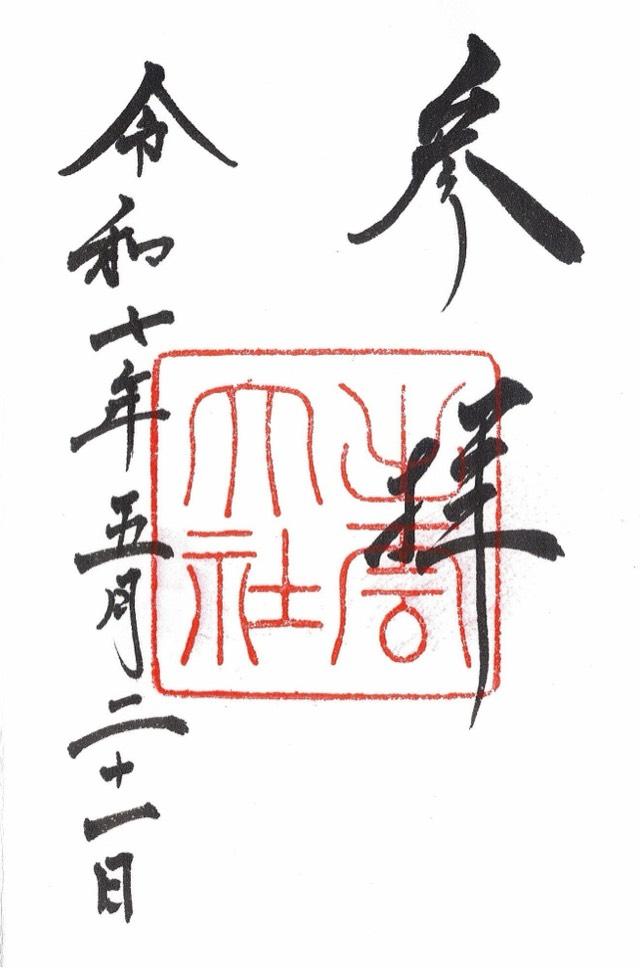 参拝
出雲
大社
令和十年五月二十一日